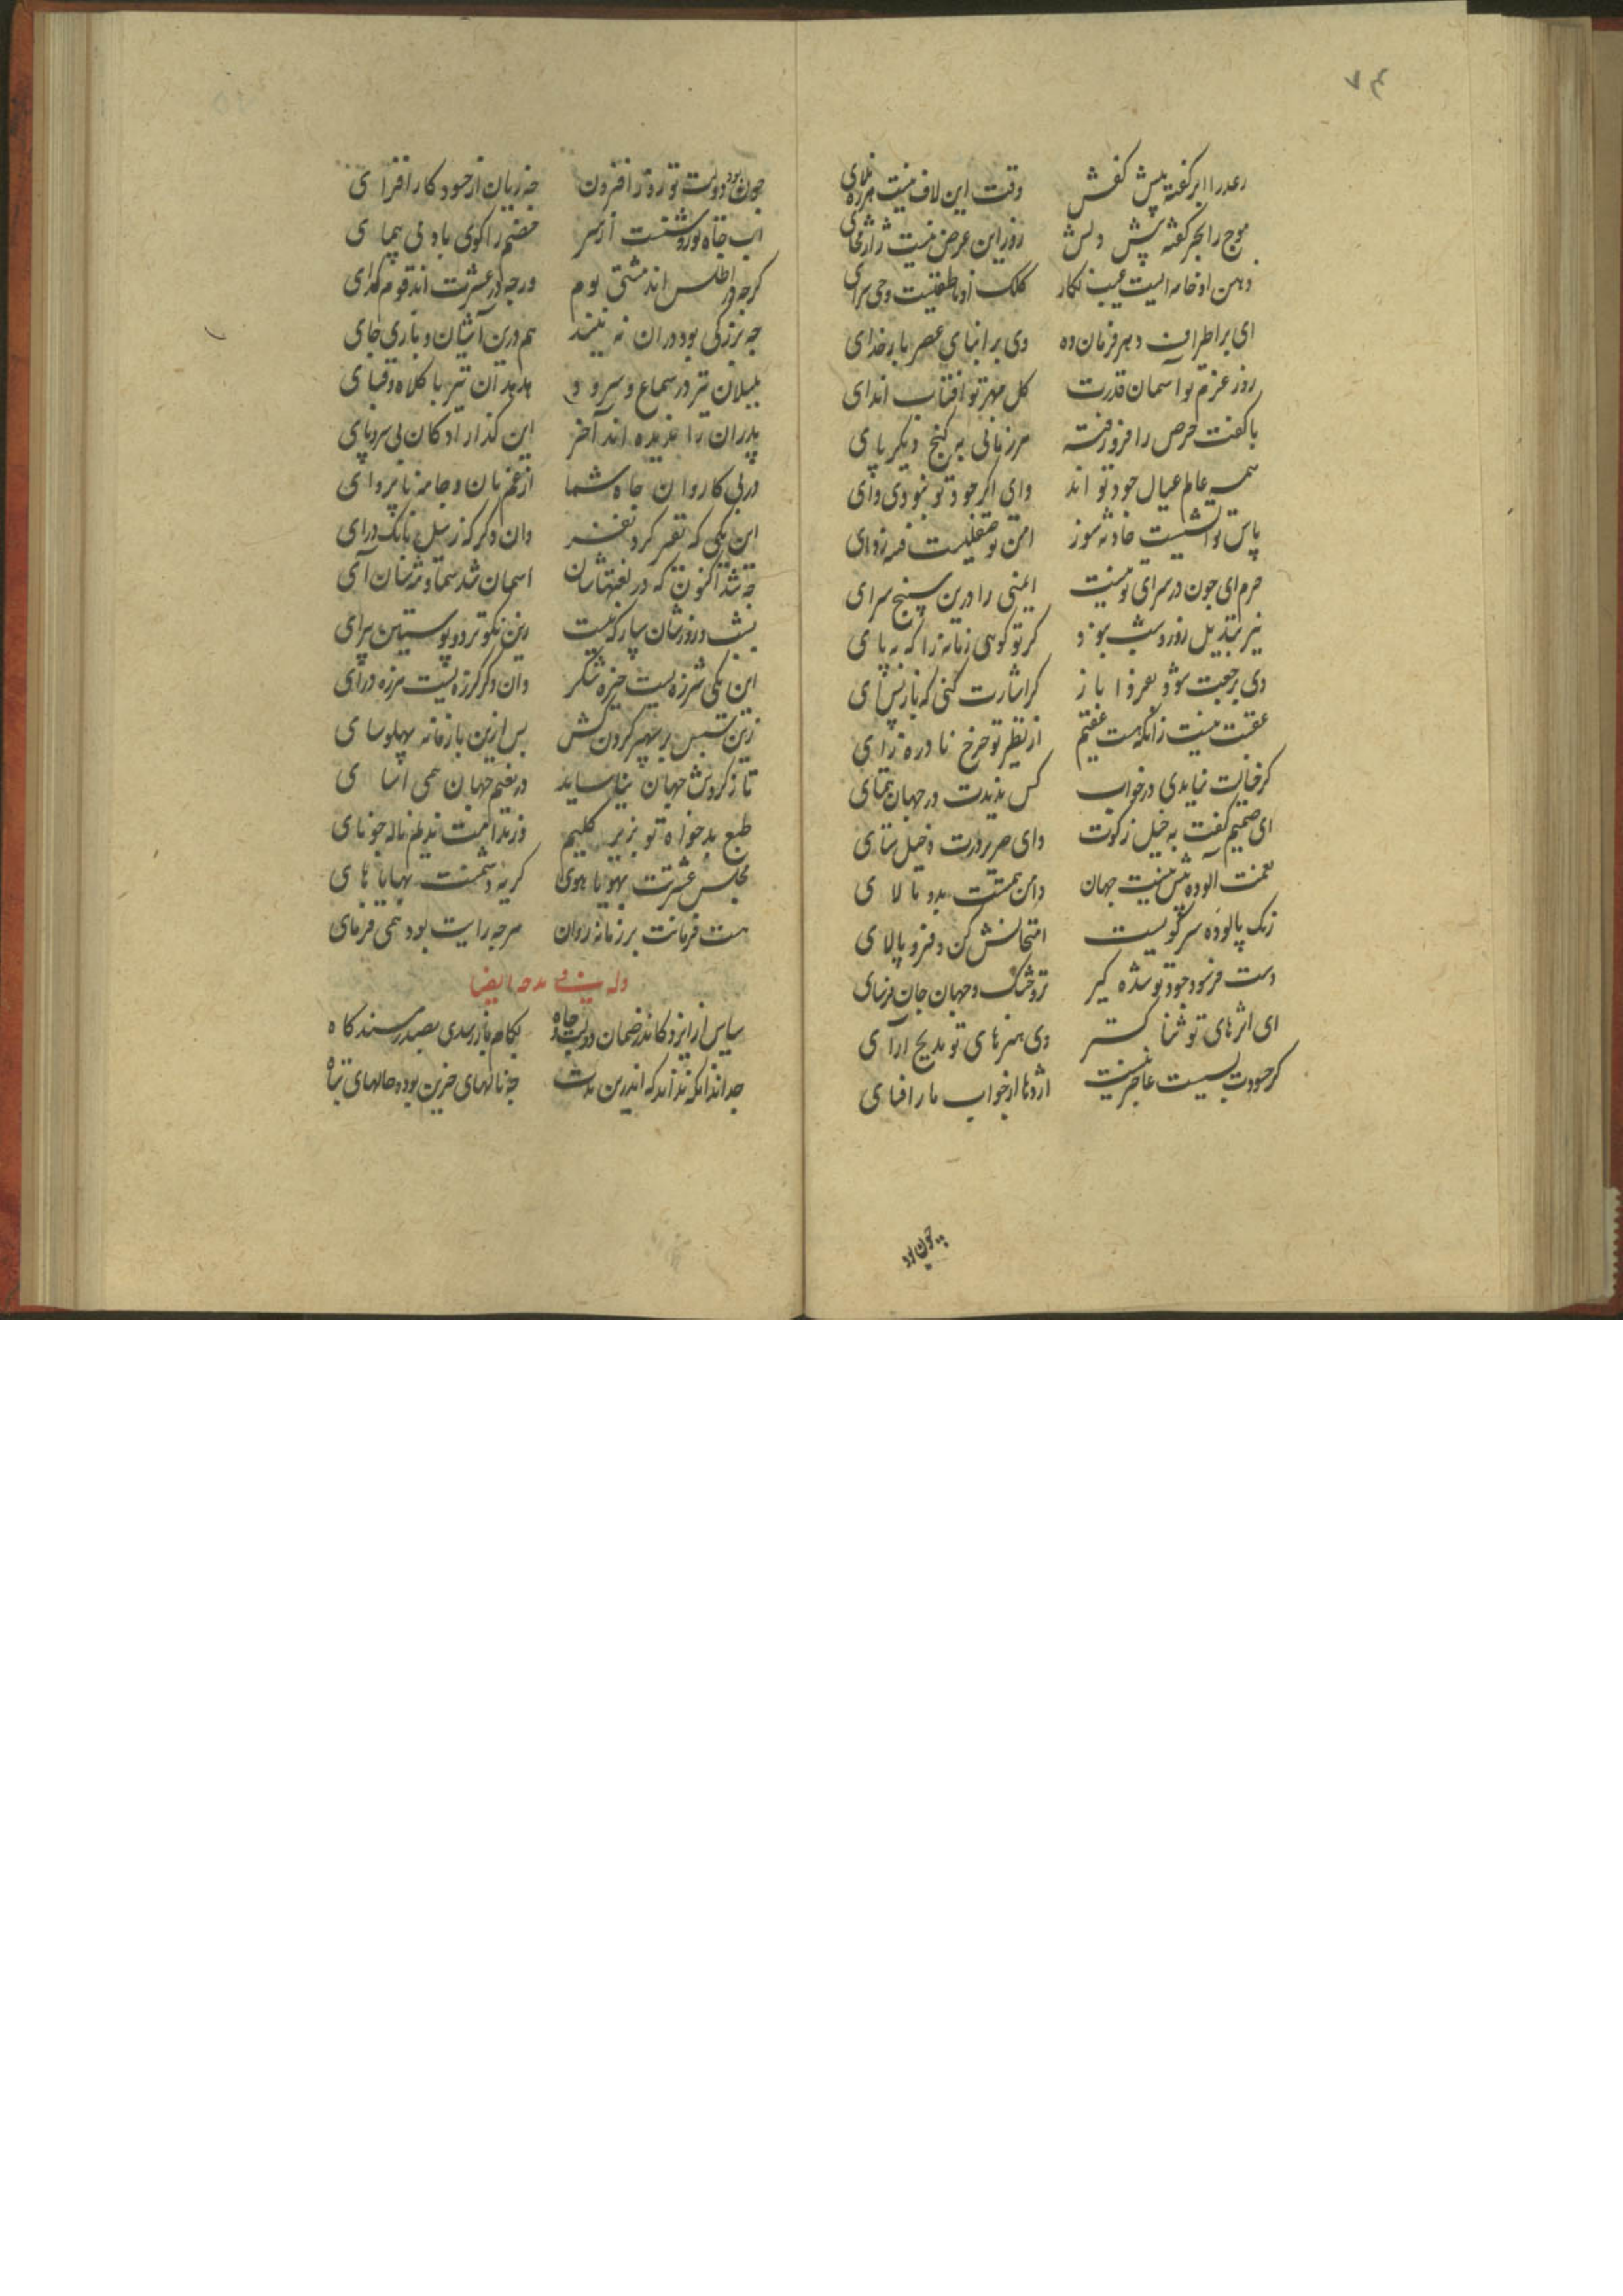 ۷۴
رعد را ابر کفته پیش کفش وقت این لاف نیست هرزه ملای
موج را بحر کفته پیش دلش روز این عرض نیست ژاژ مخای
ذهن او خامه‌ایست غیب نکار کلک او ناطقیست وحی سرای
ای بر اطراف دهر فرمان ده وی بر ابنای عصر بار خدای
روز عزم تو آسمان قدرت کل مهر تو آفتاب اندای
با کفت حرص را فرو رفته هر زمانی به کنج دیکر پای
همه عالم عیال جود تو اند وای اکر جود تو نبودی وای
پاس تو آتشیست حادثه سوز امن تو صیقلیست فتنه زدای
حرم ای جون در سرای تو نیست ایمنی را درین سپنج سرای
نیز تبدیل روز و شب نبود کر تو کوئی زمانه را که بپای
دی برجعت شود بفردا باز کر اشارت کنی که باز پس آی
عقبت نیست زانکه هست عقیم از نظیر تو چرخ نادره زای
کر خیالت نیایدی در خواب کس ندیدت در جهان همتای
ای صمیم کفت به خیل زکوت وای حریم درت دخیل ستای
نعمت آلوده بیش نیست جهان دامن همتت بدو مالای
زنک پالوده سر کویست امتحانش کن و فرو پالای
دست فرسود جود تو شده کیر تر و خشک و جهان جان فرسای
ای اثرهای تو ثنا کستر وی هنرهای تو مدیح آرای
کر حسودت بسیست عاجز نیست اژدها از جواب مار افسای
چون بود
چون بود دولت تو روز افزون چه زیان از حسود کار افزای
آب جاه تو روشنست از سر خصم را کوی باد می پیمای
کرچه در اطلس اند مشتی بوم ورچه در عشرت اند قوم کدای
چه بزرکی بود در آن نه بینند هم درین آشیان و باری جای
بلبلان نیز در سماع و سرود هدهدان نیز با کلاه و قبای
پدران را ندیده اند آخر این کدا زادکان بی سر و پای
در پی کاروان جاه شما از غم نان و جامه ناپروای
این یکی که نقیر کرد نفیر وان دکر کز رسیل بانک درای
چه شد اکنون که در لغتهاشان آسمان شد سما و مه شان آی
بشب و روزشان سپار که نیست زین نکوتر دو پوستین پیرای
این یکی شرزه‌ایست خیره شکر وان دکر کرزه‌ایست هرزه درای
زین سپس بر سپهر کردن کش پس ازین با زمانه پهلو سای
تا ز کردش جهان نیاساید در نعیم جهان همی آسای
طبع بدخواه تو بزیر کلیم وز ندامت ندیم ناله چو نای
مجلس عشرتت بهویاهوی کریه دشمنت بهایاهای
هست فرمانت بر زمانه روان هرچه رایت بود همی فرمای
وله فی مدحه ایضا
سپاس از ایزد کاندر ضمان دولت و جاه بکام باز رسیدی بصدر مسند کاه
خدا داند که اندرین مدت چه نالهای حزین بود و حالهای تباه